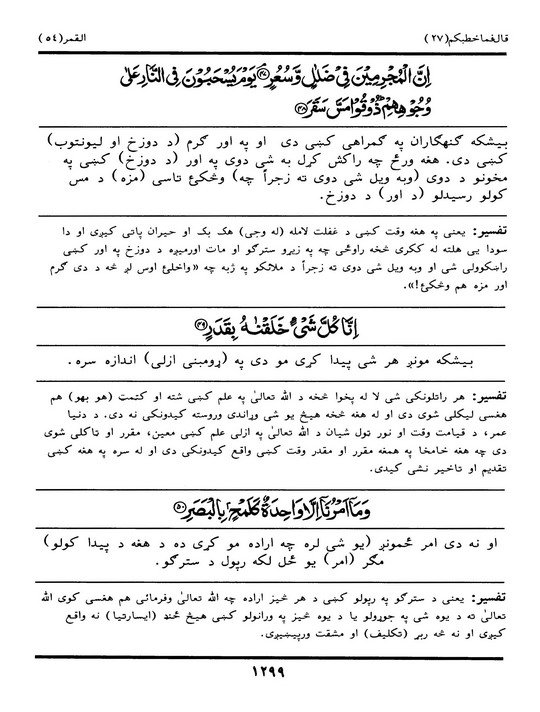 قال‌فماخطبكم(٢٧) القمر(٥٤)
اِنَّ الْمُجْرِمِيْنَ فِيْ ضَلٰلٍ وَّسُعُرٍ ﴿٤٧﴾ يَوْمَ يُسْحَبُوْنَ فِي النَّارِ عَلٰى
وُجُوْهِهِمْ ذُوْقُوْا مَسَّ سَقَرَ ﴿٤٨﴾
بېشکه ګنهګاران په ګمراهی کښی دی او په اور ګرم (د دوزخ او لېونتوب)
کښی دی. هغه ورځ چه راکش کړل به شی دوی په اور (د دوزخ) کښی په
مخونو د دوی (وبه ویل شی دوی ته زجراً چه) وڅکئ تاسی (مزه) د مس
کولو رسېدلو (د اور) د دوزخ.
تفسیر: یعنی په هغه وقت کښی د غفلت لامله (له وجی) هک بک او حیران پاتی کیږی او دا
سودا یی هلته له ککری څخه راوځی چه په زیرو سترګو او مات اورمیږه د دوزخ په اور کښی
راښکوولی شی او وبه ویل شی دوی ته زجراً د ملائکو په ژبه چه «واخلئ اوس لږ څه د دی ګرم
اور مزه هم وڅکئ!».
اِنَّا كُلَّ شَيْءٍ خَلَقْنٰهُ بِقَدَرٍ ﴿٤٩﴾
بېشکه مونږ هر شی پیدا کړی مو دی په (ړومبنی ازلی) اندازه سره.
تفسیر: هر راتلونکی شی لا له پخوا څخه د الله تعالیٰ په علم کښی شته او کټمټ (هو بهو) هم
هغسی لیکلی شوی دی او له هغه څخه هیڅ یو شی وړاندی وروسته کیدونکی نه دی. د دنیا
عمر، د قیامت وقت او نور ټول شیان د الله تعالیٰ په ازلی علم کښی معین، مقرر او ټاکلی شوی
دی چه هغه خامخا په همغه مقرر او مقدر وقت کښی واقع کیدونکی دی او له سره په هغه کښی
تقدیم او تاخیر نشی کیدی.
وَمَآ اَمْرُنَآ اِلَّا وَاحِدَةٌ كَلَمْحٍۭ بِالْبَصَرِ ﴿٥٠﴾
او نه دی امر ځمونږ (یو شی لره چه اراده مو کړی ده د هغه د پیدا کولو)
مګر (امر) یو ځل لکه رپول د سترګو.
تفسیر: یعنی د سترګو په رپولو کښی د هر څیز اراده چه الله تعالیٰ وفرمائی هم هغسی کوی الله
تعالیٰ ته د یوه شی په جوړولو یا د یوه څیز په ورانولو کښی هیڅ ځنډ (ایسارتیا) نه واقع
کیږی او نه څه ربړ (تکلیف) او مشقت ورپیښیږی.
١٢٩٩